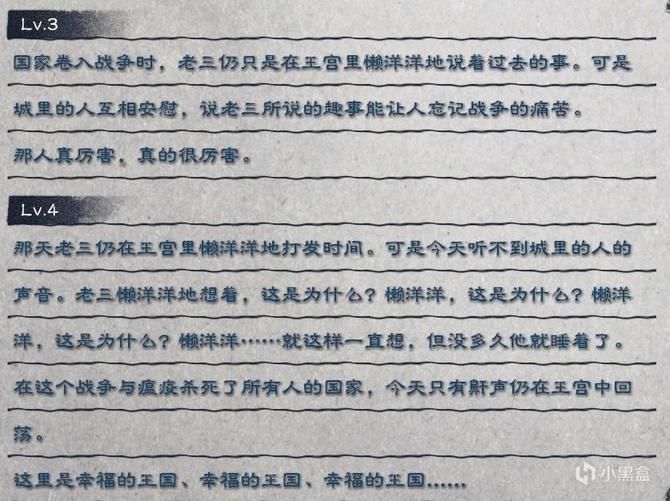 Lv.3
国家卷入战争时，老三仍只是在王宫里懒洋洋地说着过去的事。可是
城里的人互相安慰，说老三所说的趣事能让人忘记战争的痛苦。
那人真厉害，真的很厉害。
Lv.4
那天老三仍在王宫里懒洋洋地打发时间。可是今天听不到城里的人的
声音。老三懒洋洋地想着，这是为什么？懒洋洋，这是为什么？懒洋
洋，这是为什么？懒洋洋……就这样一直想，但没多久他就睡着了。
在这个战争与瘟疫杀死了所有人的国家，今天只有鼾声仍在王宫中回
荡。
这里是幸福的王国、幸福的王国、幸福的王国……
小黑盒